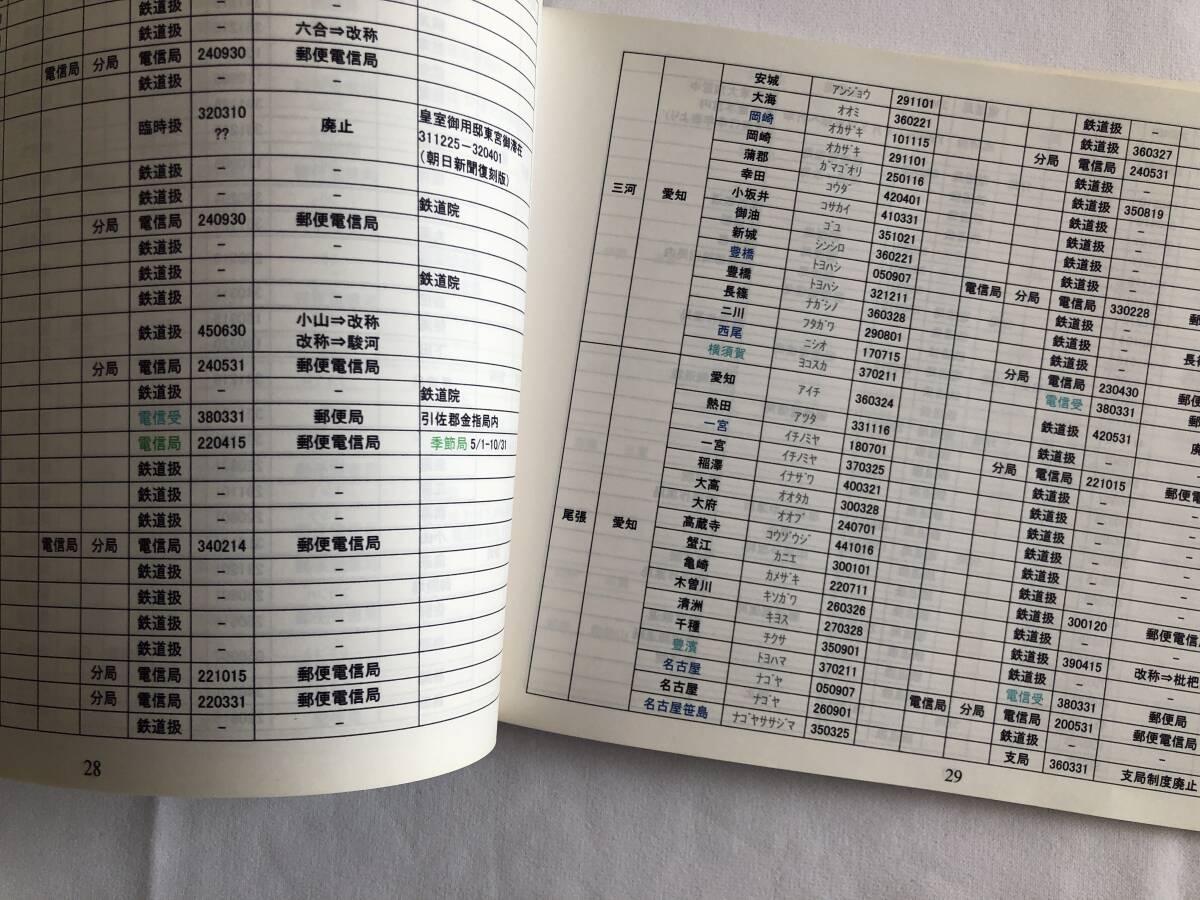 鉄道扱 -
鉄道扱 六合⇒改称
電信局 分局 電信局 240930 郵便電信局
鉄道扱 - -
臨時扱 320310 ?? 廃止 皇室御用邸東宮御滞在
311225-320401
(朝日新聞復刻版)
鉄道扱 - -
鉄道扱 - - 鉄道院
分局 電信局 240930 郵便電信局
鉄道扱 - -
鉄道扱 - - 鉄道院
鉄道扱 - -
鉄道扱 450630 小山⇒改称
改称⇒駿河
分局 電信局 240531 郵便電信局
鉄道扱 - - 鉄道院
電信受 380331 郵便局 引佐郡金指局内
電信局 220415 郵便電信局 季節局 5/1-10/31
鉄道扱 - -
鉄道扱 - -
鉄道扱 - -
電信局 分局 電信局 340214 郵便電信局
鉄道扱 - -
鉄道扱 - -
鉄道扱 - -
鉄道扱 - -
分局 電信局 221015 郵便電信局
分局 電信局 220331 郵便電信局
鉄道扱 - -
28
三河 愛知
安城 アンジョウ 291101 鉄道扱 -
大海 オオミ 360221 鉄道扱 360327
岡崎 オカザキ 101115 分局 電信局 240531
岡崎 オカザキ 291101 鉄道扱 -
蒲郡 ガマゴオリ 250116 鉄道扱 350819
幸田 コウダ 420401 鉄道扱 -
小坂井 コサカイ 410331 鉄道扱 -
御油 ゴユ 351021 鉄道扱 -
新城 シンシロ 360221 鉄道扱 -
豊橋 トヨハシ 050907 電信局 分局 電信局 330228 郵
豊橋 トヨハシ 321211 鉄道扱 -
長篠 ナガシノ 360328 鉄道扱 - 長篠
二川 フタガワ 290801 鉄道扱 -
西尾 ニシオ 170715 分局 電信局 230430 郵便
横須賀 ヨコスカ 370211 電信受 380331 郵
尾張 愛知
愛知 アイチ 360324 鉄道扱 420531 廃
熱田 アツタ 331116 鉄道扱 -
一宮 イチノミヤ 180701 分局 電信局 221015 郵便電
一宮 イチノミヤ 370325 鉄道扱 -
稲澤 イナザワ 400321 鉄道扱 -
大高 オオタカ 300328 鉄道扱 -
大府 オオブ 240701 鉄道扱 -
高蔵寺 コウゾウジ 441016 鉄道扱 -
蟹江 カニエ 300101 鉄道扱 -
亀崎 カメザキ 220711 鉄道扱 300120 郵便電信
木曽川 キソガワ 260326 鉄道扱 -
清洲 キヨス 270328 鉄道扱 -
千種 チクサ 350901 鉄道扱 390415 改称⇒枇杷
豊濱 トヨハマ 370211 電信受 380331 郵便局
名古屋 ナゴヤ 050907 電信局 分局 電信局 200531 郵便電信局
名古屋 ナゴヤ 260901 鉄道扱 - -
名古屋笹島 ナゴヤササジマ 350325 支局 360331 支局制度廃止
29